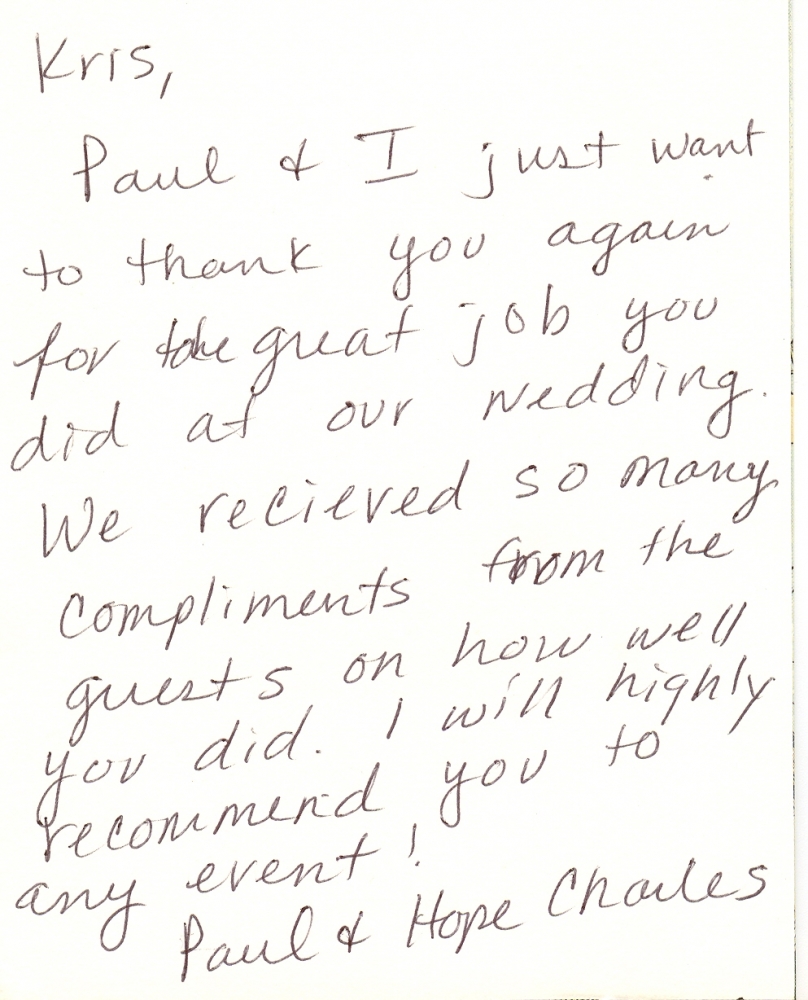 Kris,
Paul & I just want
to thank you again
for the great job you
did at our wedding.
We recieved so many
compliments from the
guests on how well
you did. I will highly
recommend you to
any event!
Paul & Hope Charles